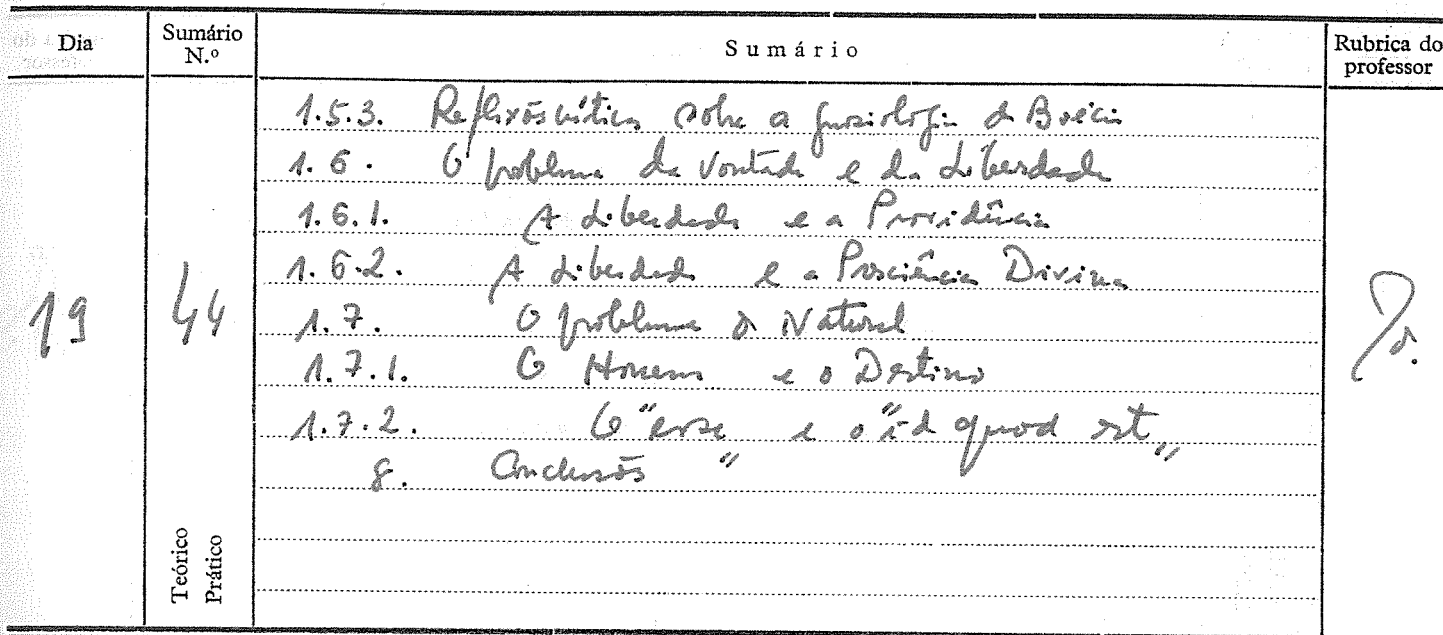 Dia Sumário N.º Sumário Rubrica do professor
1.5.3. Reflexões críticas sobre a gnosiologia de Boécio
1.6. O problema da Vontade e da Liberdade
1.6.1. A Liberdade e a Providência
1.6.2. A Liberdade e a Presciência Divina
19 44 1.7. O problema do Natural
1.7.1. O Homem e o Destino
1.7.2. O "esse" e o "id quod est"
8. Conclusões
Teórico
Prático